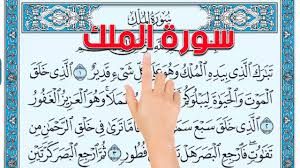 سُورَةُ الْمُلْكِ
سورة الملك
تَبَٰرَكَ ٱلَّذِى بِيَدِهِ ٱلْمُلْكُ وَهُوَ عَلَىٰ كُلِّ شَىْءٍ قَدِيرٌ ١ ٱلَّذِى خَلَقَ
ٱلْمَوْتَ وَٱلْحَيَوٰةَ لِيَبْلُوَكُمْ عَمَلًا وَهُوَ ٱلْعَزِيزُ ٱلْغَفُورُ
ٱلَّذِى خَلَقَ سَبْعَ سَمَٰوَ خَلْقِ ٱلرَّحْمَٰنِ مِن
تَفَٰوُتٍ فَٱرْجِعِ ٱلْبَصَرَ فُطُورٍ ٣ ثُمَّ ٱرْجِعِ ٱلْبَصَرَ كَرَّتَيْنِ